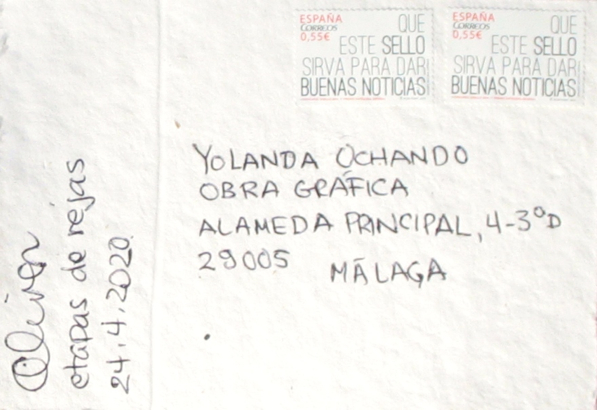 ESPAÑA
CORREOS
0,55€
QUE
ESTE SELLO
SIRVA PARA DAR
BUENAS NOTICIAS
ESPAÑA
CORREOS
0,55€
QUE
ESTE SELLO
SIRVA PARA DAR
BUENAS NOTICIAS
YOLANDA OCHANDO
OBRA GRÁFICA
ALAMEDA PRINCIPAL, 4-3ºD
29005 MÁLAGA
Oliver
etapas de rejas
24.4.2020